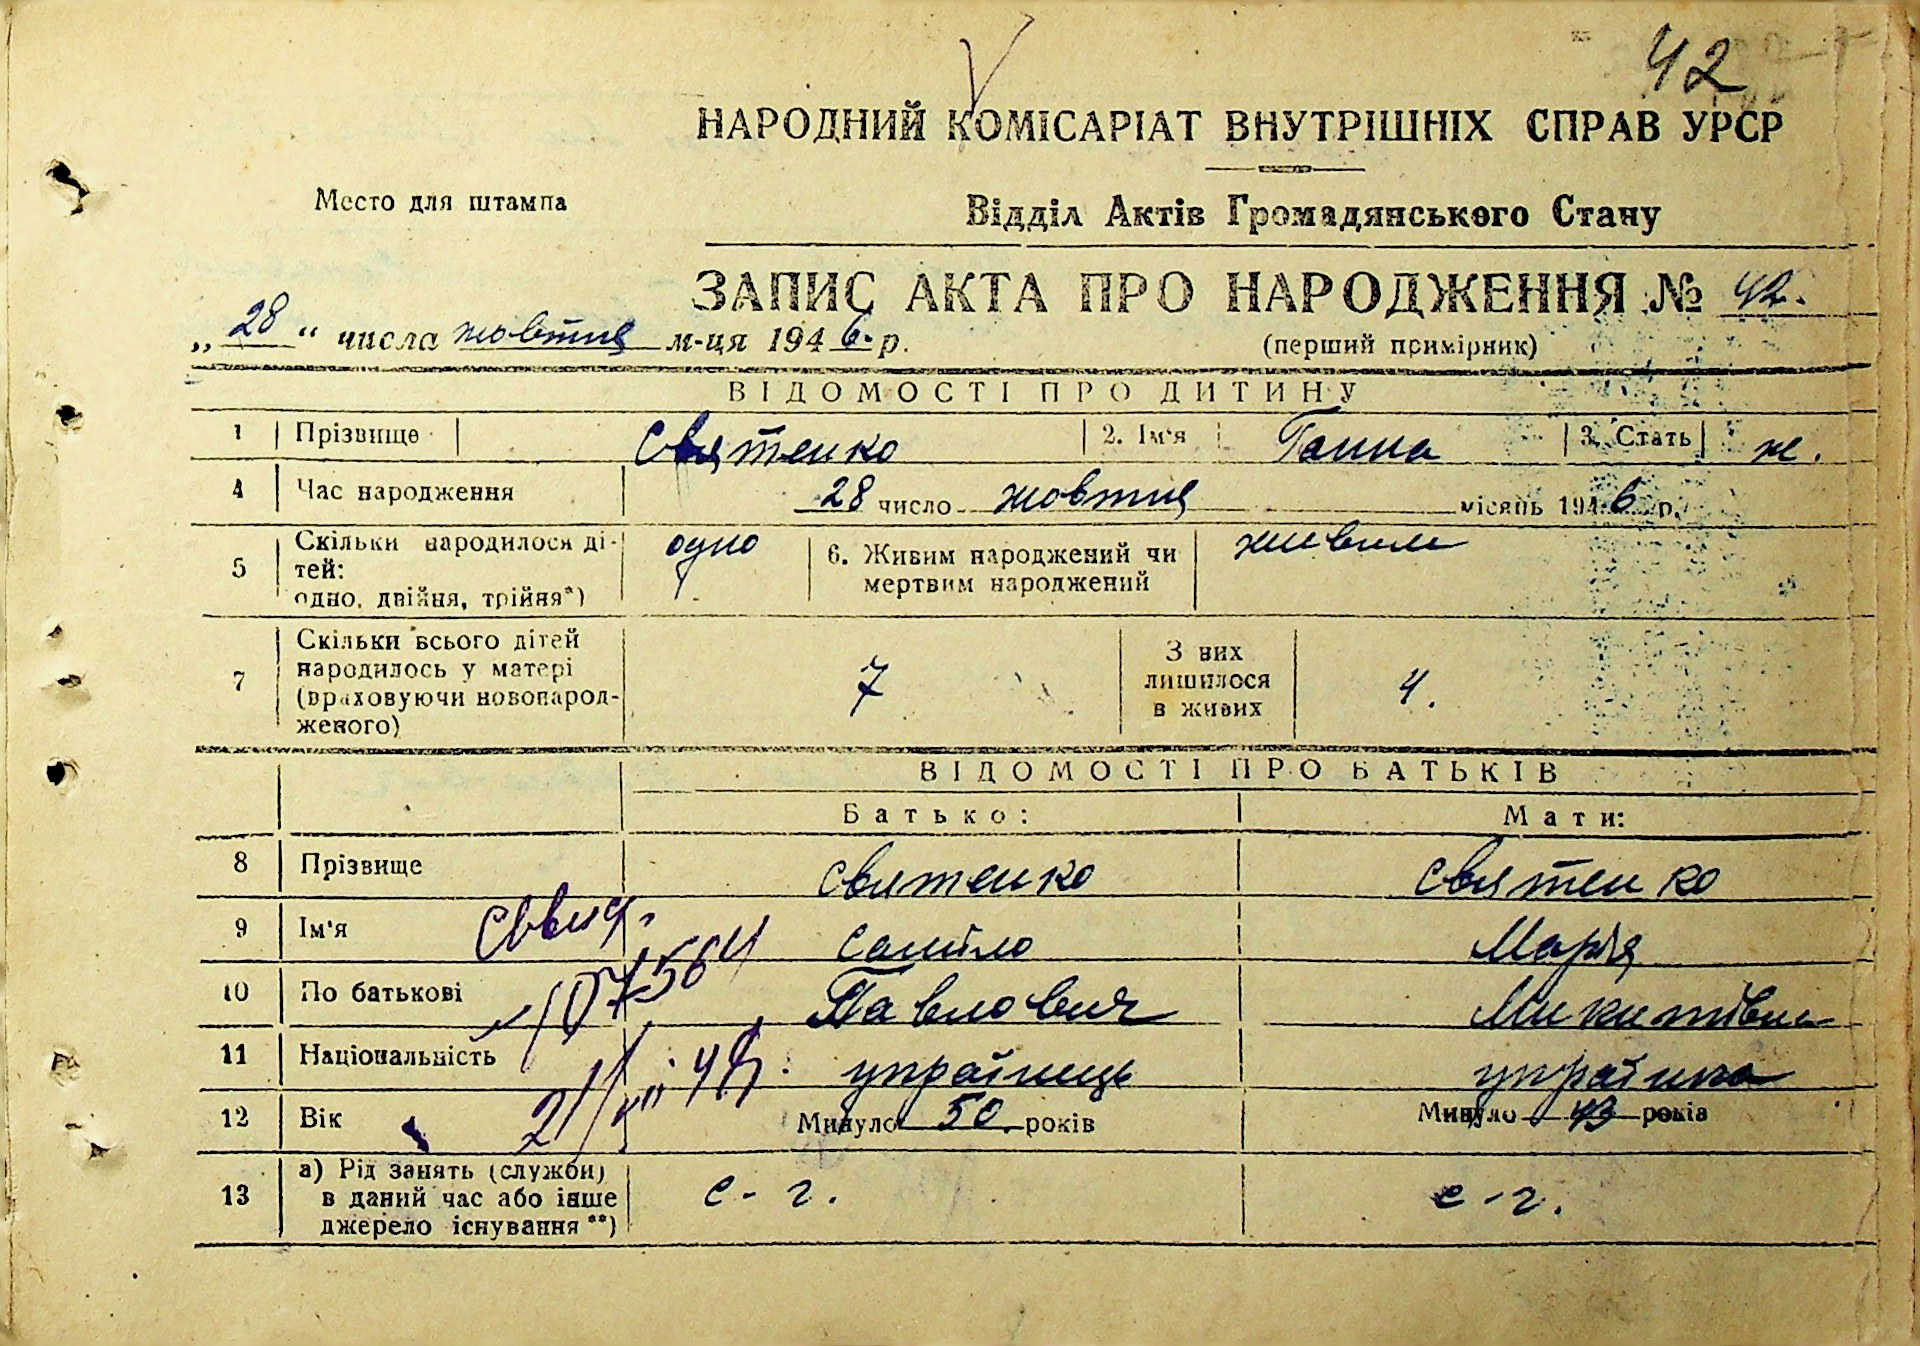 42
НАРОДНИЙ КОМІСАРІАТ ВНУТРІШНІХ СПРАВ УРСР
Место для штампа
Відділ Актів Громадянського Стану
ЗАПИС АКТА ПРО НАРОДЖЕННЯ № 42.
„28“ числа жовтня м-ця 1946. р.
(перший примірник)
ВІДОМОСТІ ПРО ДИТИНУ
1 Прізвище Святенко 2. Ім'я Ганна 3. Стать ж.
4 Час народження 28 число жовтня місяць 1946 р.
5 Скільки народилося ді-
тей:
одно, двійня, трійня*) одно 6. Живим народжений чи
мертвим народжений живим
7 Скільки всього дітей
народилось у матері
(враховуючи новонарод-
женого) 7 З них
лишилося
в живих 4.
ВІДОМОСТІ ПРО БАТЬКІВ
Батько: Мати:
8 Прізвище Святенко Святенко
9 Ім'я Самійло Марія
10 По батькові Павлович Микитівна
107564
11 Національність українець українка
12 Вік Минуло 50. років Минуло 43 років
13 а) Рід занять (служби)
в даний час або інше
джерело існування **) с-г. с-г.